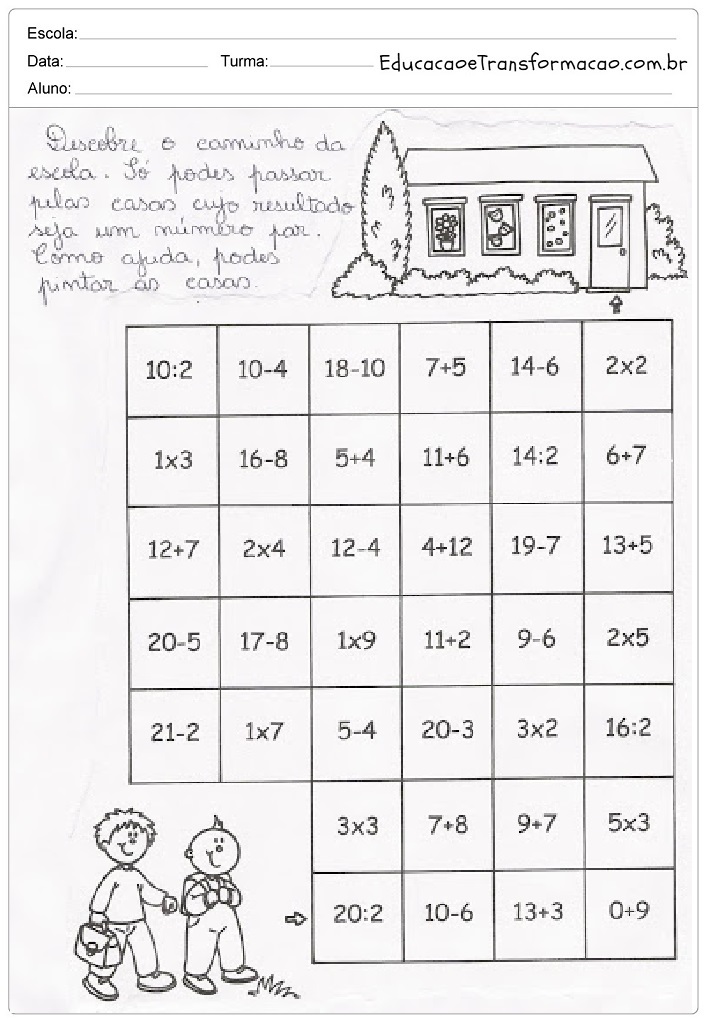 Escola:
Data: Turma: EducacaoeTransformacao.com.br
Aluno:
Descobre o caminho da
escola. Só podes passar
pelas casas cujo resultado
seja um número par.
Como ajuda, podes
pintar as casas.
10:2 10-4 18-10 7+5 14-6 2x2
1x3 16-8 5+4 11+6 14:2 6+7
12+7 2x4 12-4 4+12 19-7 13+5
20-5 17-8 1x9 11+2 9-6 2x5
21-2 1x7 5-4 20-3 3x2 16:2
3x3 7+8 9+7 5x3
20:2 10-6 13+3 0+9